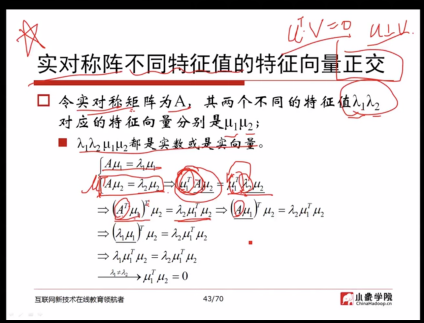 uᵀ·V=0 u⊥V.
实对称阵不同特征值的特征向量正交
令实对称矩阵为A，其两个不同的特征值λ₁λ₂
对应的特征向量分别是μ₁μ₂；
λ₁λ₂μ₁μ₂都是实数或是实向量。
Aμ₁=λ₁μ₁
Aμ₂=λ₂μ₂ ⇒ μ₁ᵀAμ₂=μ₁ᵀλ₂μ₂
⇒(Aᵀμ₁)ᵀμ₂=λ₂μ₁ᵀμ₂ ⇒(Aμ₁)ᵀμ₂=λ₂μ₁ᵀμ₂
⇒(λ₁μ₁)ᵀμ₂=λ₂μ₁ᵀμ₂
⇒λ₁μ₁ᵀμ₂=λ₂μ₁ᵀμ₂
λ₁≠λ₂ → μ₁ᵀμ₂=0
互联网新技术在线教育领航者 43/70 小象学院
ChinaHadoop.cn